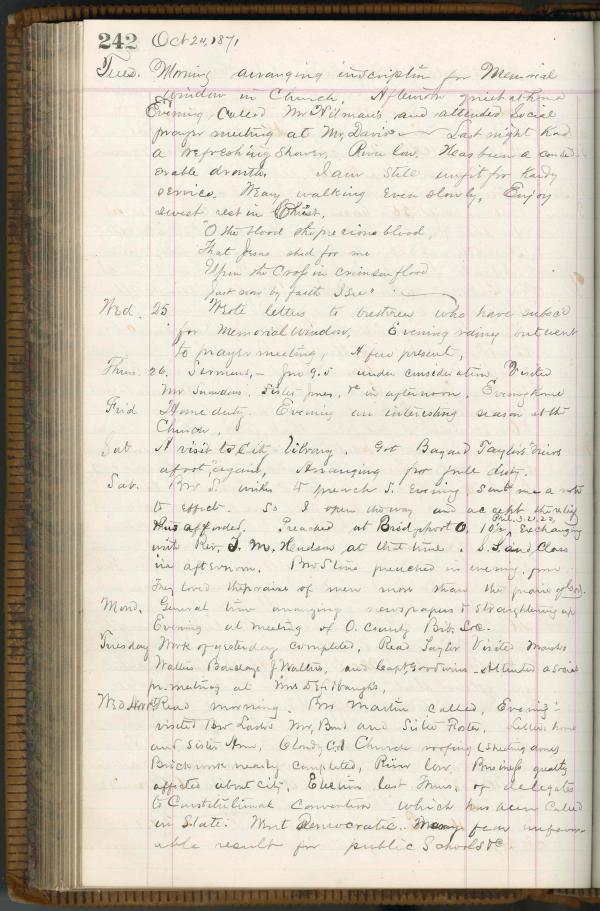 242 Oct 24, 1871
Tues. Morning arranging inscription for Memorial
window in Church. Afternoon quiet at home
Evening called Mr and attended Social
prayer meeting at Mr. Davis — Last night had
a refreshing shower. River low. Has been a consid-
erable drouth. I am still unfit for hardy
service. Weary walking even slowly. Enjoy
sweet rest in Christ.
"O the blood the precious blood,
That Jesus shed for me
Upon the Cross in crimson flood
Just now by faith I see"
Wed. 25 Wrote letters to brethren who have subscd
for Memorial Window. Evening rainy but went
to prayer meeting, A few present,
Thurs. 26. Sermons, — Jno 9.5 under consideration. Visited
Mr Snowdens, Sister Jones, &c in afternoon. Evening home
Frid Home duty. Evening an interesting season at the
Church.
Sat A visit to City library. Got Bayard Taylor's Views
afoot, again, Arranging for duty.
Sab. Bro S. wishes to preach S. Evening, sent me a note
to effect. So I open the way and accept the relief
thus afforded. Preached at Bridgeport O. 10½ Phil. 3.21,22, Exchanging
with Rev. J. M. Hudson at that time. S.S. and Class
in afternoon. Bro preached in evening from
They loved the praise of men more than the praise of God.
Mond. General time arranging newspapers & straightening up
Evening at meeting of O. County Bib. Soc.
Tuesday Work of yesterday completed, Read Taylor Visited
Walters J. Walters, and Capt. Goodwins — Attended a Social
pr. meeting at Mrs
Wed Nov 1 Read morning. Bro Martin called, Evening
visited Bro Mr, and Sister Foster. Letters home
and Sister Ann, Cloudy Cd Church roofing (sheeting done)
Brickwork nearly completed, River low, Business greatly
affected about City, Election last Thurs. of delegates
to Constitutional Convention which has been called
in State. Most Democratic. Many fear unfavor-
able result for public Schools &c